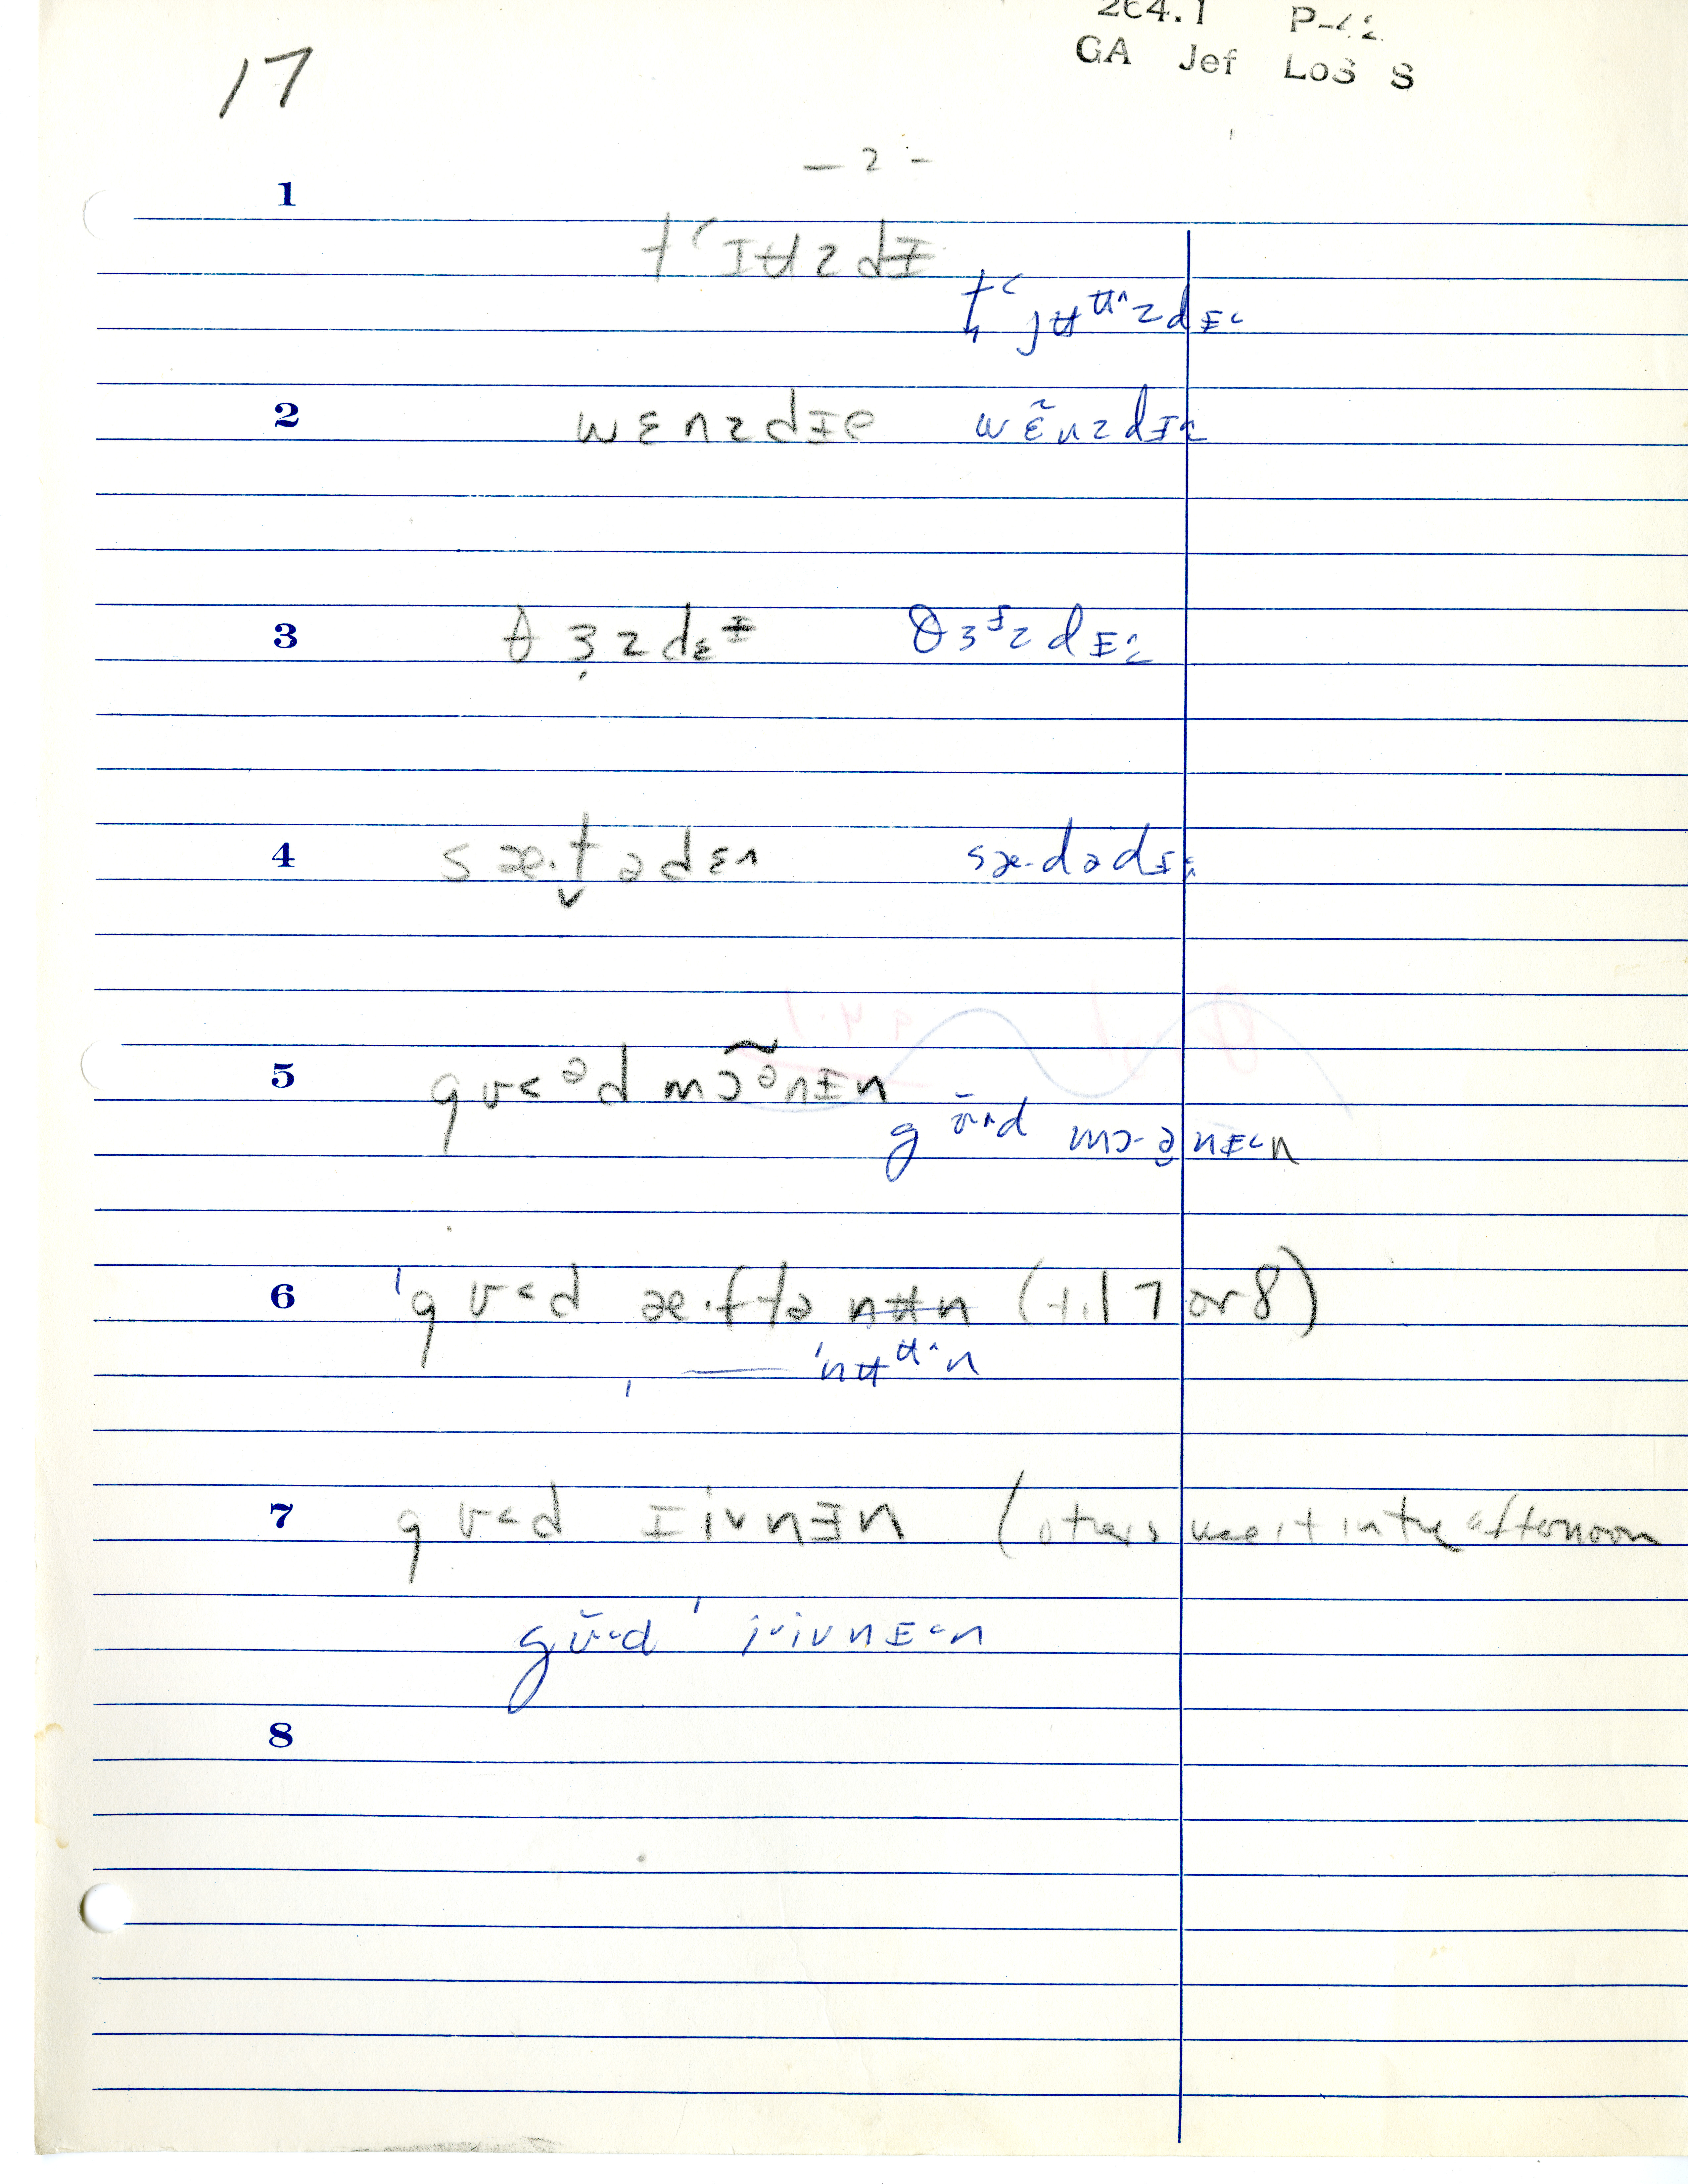 264.1 P-42
GA Jef LoS S
17
— 2 -
1
t‘ɪʉzdɪ̵
t̡‘jʉʉ^zdɪ̵˂
2
wɛnzdɪ̵ə wɛ̃nzdɪ̵
3
θɜzdɛɪ̵ θɜɪzdɪ̵
4
sæ·t̬ədɛ sæ·dədɪ̵
5
gʊ˂ᵊd mɔ̃ᵊnɪ̵n
gʊd mɔ·ə̯nɪ̵˂n
6
'gʊ˂d æ·ftə nʉn (til 7 or 8)
' — 'nʉʉ^n
7
gʊ˂d ɪivnɪ̵n (others use it in the afternoon
gʊ˂d 'i˅ivnɪ̵˂n
8